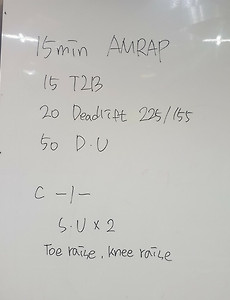 15min AMRAP
15 T2B
20 Deadlift 225/155
50 D.U
C -/-
S.U x 2
Toe raise, knee raise